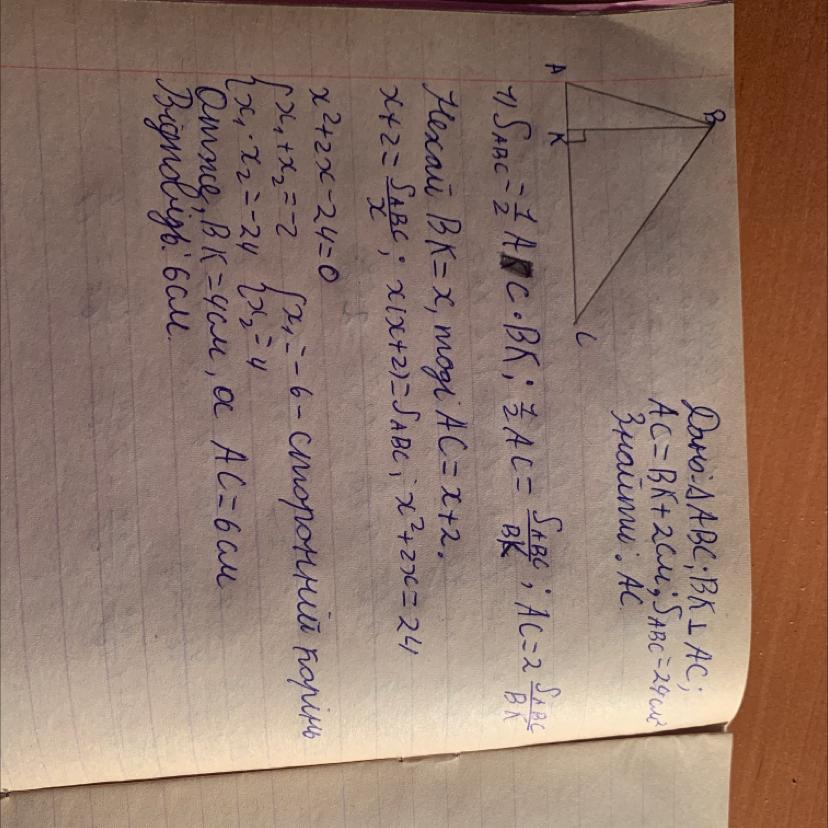 A
B
K
C
Дано: ΔABC; BK⊥AC;
AC=BK+2см; S_ABC=24см²
Знайти: AC.
1) S_ABC = 1/2 AC·BK; 1/2 AC = S_ABC/BK; AC = 2 S_ABC/BK
Нехай BK=x, тоді AC=x+2.
x+2 = S_ABC/x; x(x+2)=S_ABC; x²+2x=24
x²+2x-24=0
{x₁+x₂=-2 {x₁=-6 - сторонній корінь
{x₁·x₂=-24 {x₂=4
Отже, BK=4см, а AC=6см
Відповідь: 6см.